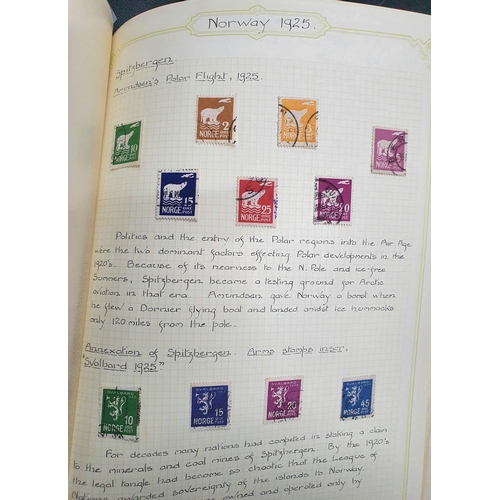 Norway 1925.
Spitzbergen.
Amundsen's Polar Flight, 1925.
10 NORGE
2 NORGE
3 NORGE
NORGE
15 NORGE
25 NORGE
NORGE
Politics and the entry of the Polar regions into the Air Age
were the two dominant factors effecting Polar developments in the
1920's. Because of its nearness to the N. Pole and ice-free
Summers, Spitzbergen became a testing ground for Arctic
aviation in that era. Amundsen gave Norway a boost when
he flew a Dornier flying boat and landed amidst ice hummocks
only 120 miles from the pole.
Annexation of Spitzbergen. Arms stamps inscr.
"Svalbard 1925"
10 NORGE
15 NORGE
20 NORGE
45 NORGE
For decades many nations had competed in staking a claim
to the minerals and coal mines of Spitzbergen. By the 1920's
the legal tangle had become so chaotic that the League of
Nations awarded sovereignty of the islands to Norway.
owned and operated only by